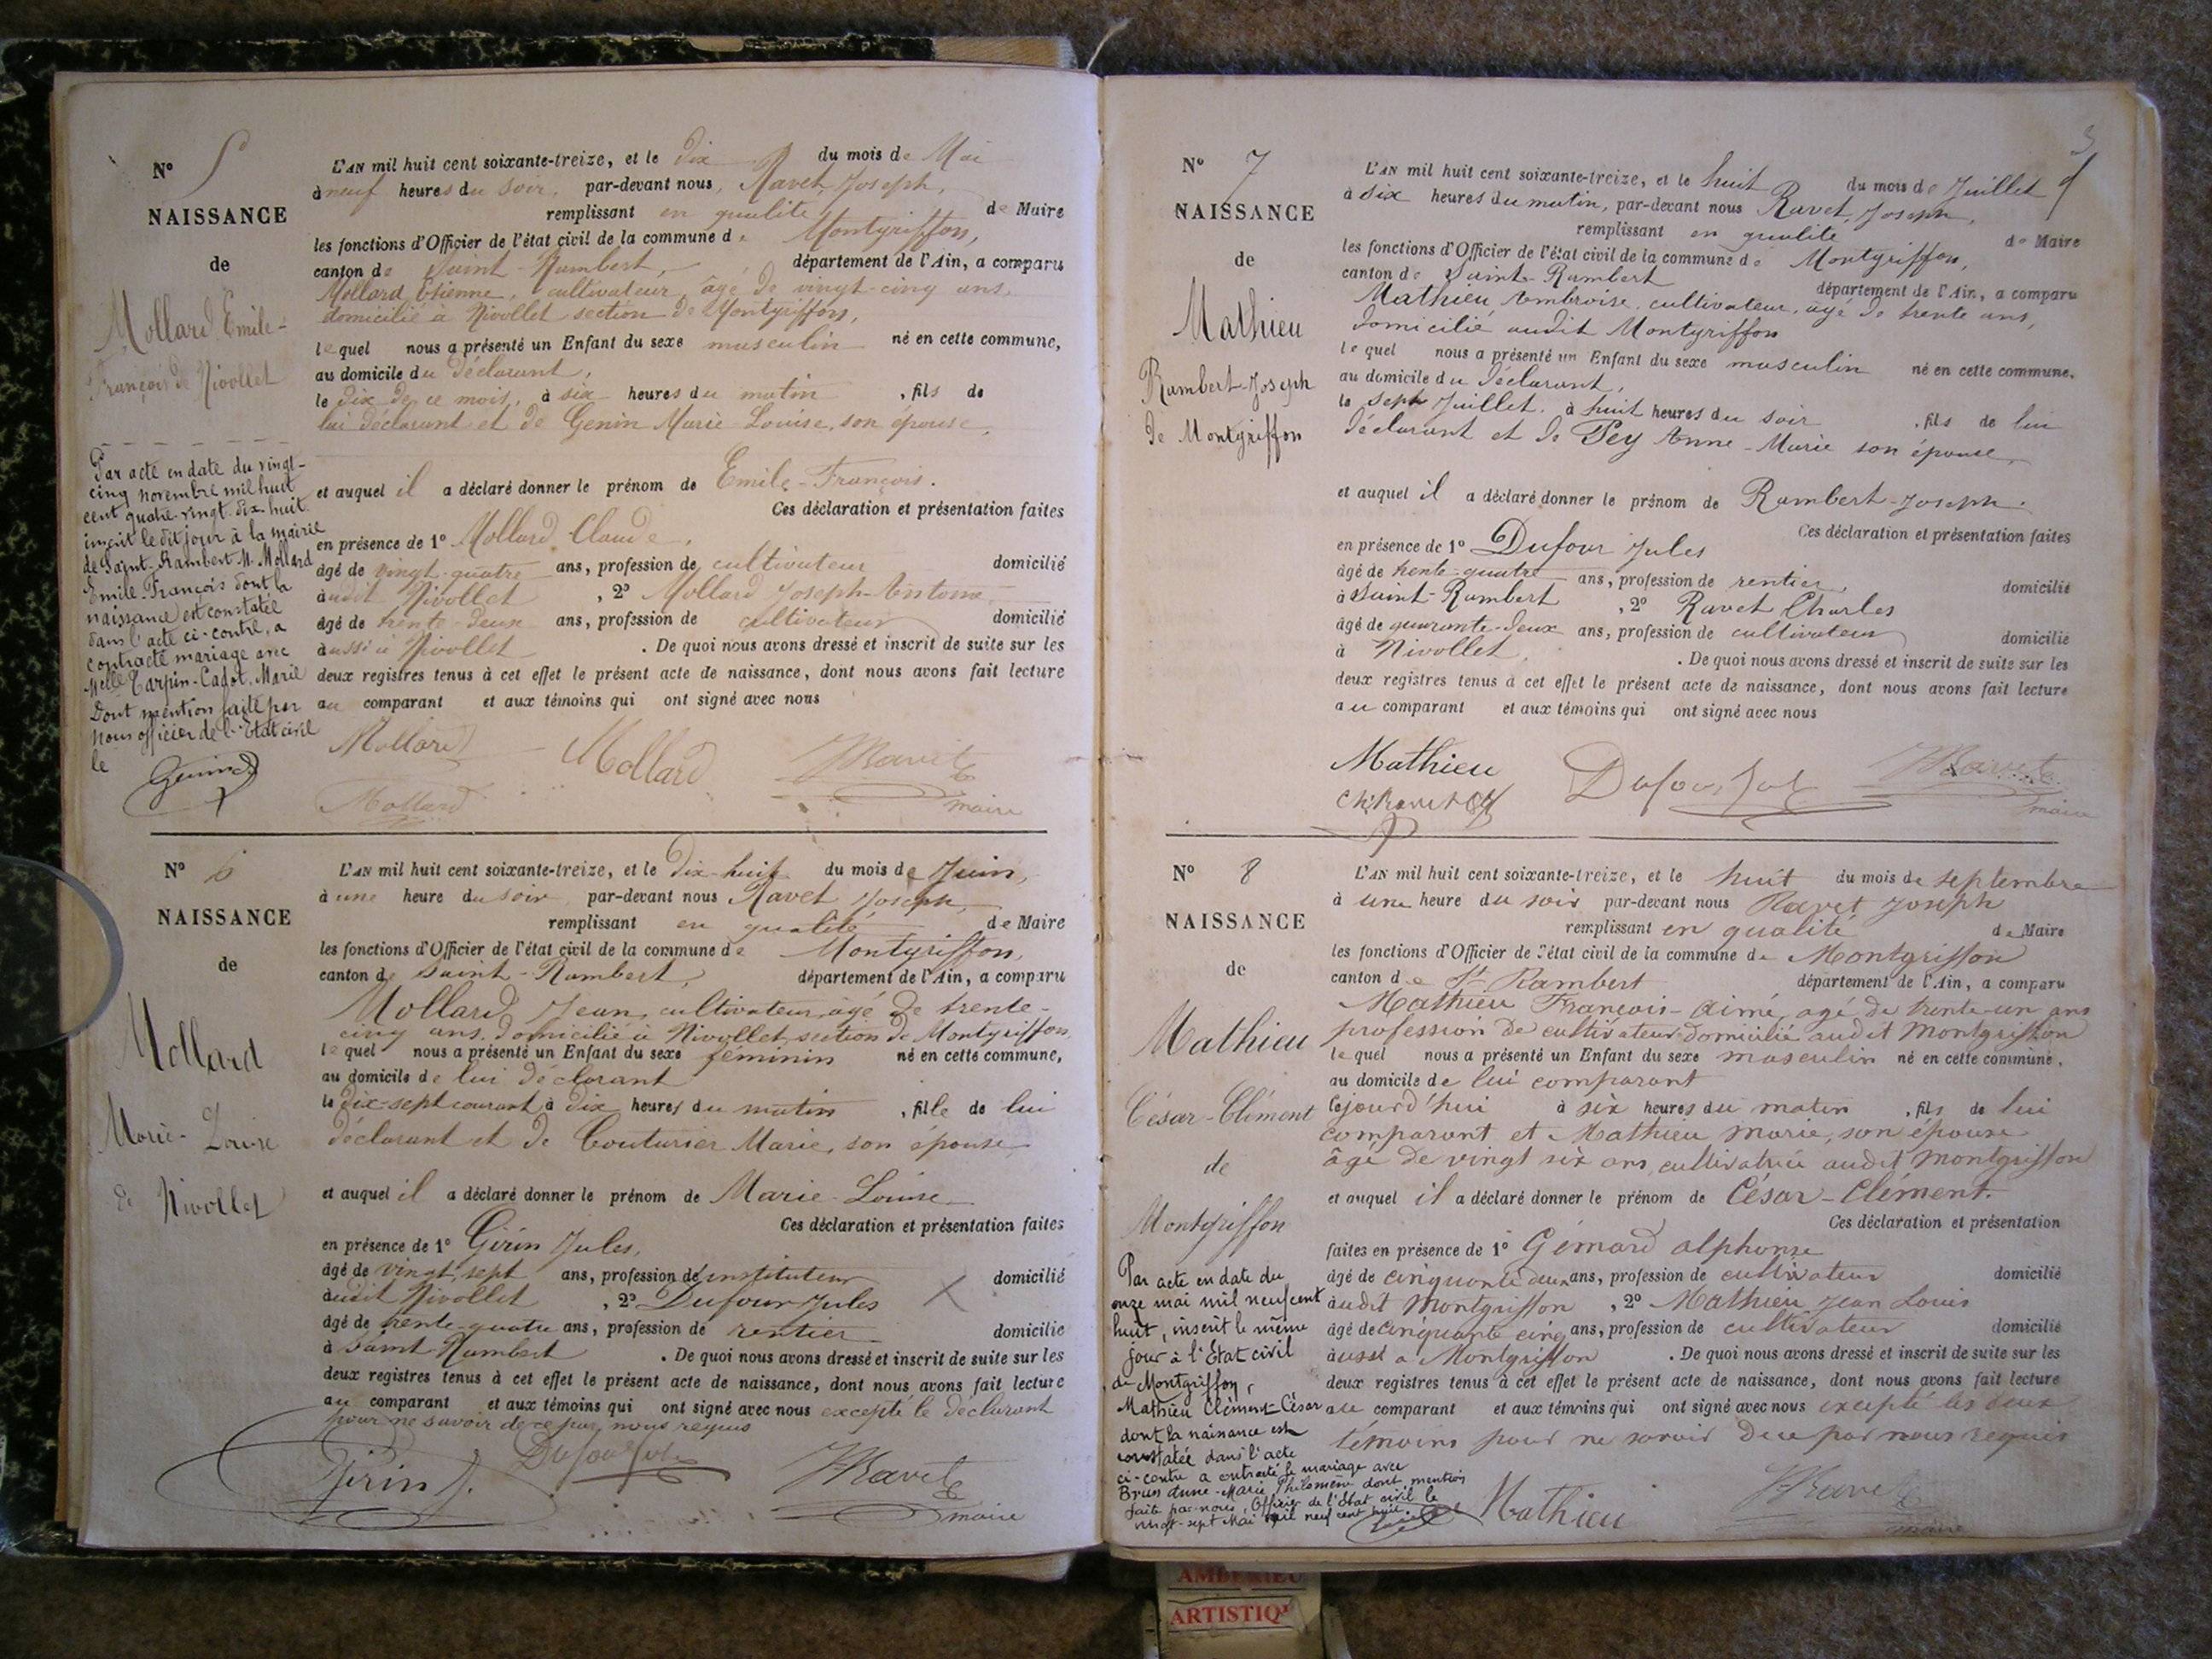 N° 5
NAISSANCE
de
Mollard Emile-
François de Nivollet
Par acte en date du vingt-
cinq novembre mil huit
cent quatre-vingt-dix huit
inscrit le dit jour à la mairie
de Saint-Rambert M. Mollard
Emile-François dont la
naissance est constatée
dans l'acte ci-contre, a
contracté mariage avec
Melle Tarpin-Cadot Marie
Dont mention faite par
nous officier de l'Etat civil
le
L'AN mil huit cent soixante-treize, et le dix du mois de Mai
à neuf heures du soir, par-devant nous, Ravet, Joseph,
remplissant en qualité de Maire
les fonctions d'Officier de l'état civil de la commune de Montgriffon,
canton de Saint-Rambert, département de l'Ain, a comparu
Mollard Etienne, cultivateur, âgé de vingt-cinq ans,
domicilié à Nivollet section de Montgriffon,
lequel nous a présenté un Enfant du sexe masculin né en cette commune,
au domicile du déclarant,
le dix de ce mois, à six heures du matin, fils de
lui déclarant et de Genin Marie Louise, son épouse,
et auquel il a déclaré donner le prénom de Emile-François.
Ces déclaration et présentation faites
en présence de 1° Mollard Claude,
âgé de vingt-quatre ans, profession de cultivateur domicilié
audit Nivollet, 2° Mollard Joseph-Antoine
âgé de trente-deux ans, profession de cultivateur domicilié
aussi à Nivollet. De quoi nous avons dressé et inscrit de suite sur les
deux registres tenus à cet effet le présent acte de naissance, dont nous avons fait lecture
au comparant et aux témoins qui ont signé avec nous
Mollard Mollard JRavet
Mollard maire
N° 6
NAISSANCE
de
Mollard
Marie-Louise
de Nivollet
L'AN mil huit cent soixante-treize, et le dix-huit du mois de Juin,
à une heure du soir par-devant nous Ravet Joseph,
remplissant en qualité de Maire
les fonctions d'Officier de l'état civil de la commune de Montgriffon,
canton de Saint-Rambert, département de l'Ain, a comparu
Mollard Jean, cultivateur, âgé de trente-
cinq ans, domicilié à Nivollet, section de Montgriffon,
lequel nous a présenté un Enfant du sexe féminin né en cette commune,
au domicile de lui déclarant
le dix-sept courant à dix heures du matin, fille de lui
déclarant et de Couturier Marie, son épouse
et auquel il a déclaré donner le prénom de Marie-Louise
Ces déclaration et présentation faites
en présence de 1° Girin Jules,
âgé de vingt-sept ans, profession d'instituteur domicilié
audit Nivollet, 2° Dufour Jules
âgé de trente-quatre ans, profession de rentier domicilié
à Saint-Rambert. De quoi nous avons dressé et inscrit de suite sur les
deux registres tenus à cet effet le présent acte de naissance, dont nous avons fait lecture
au comparant et aux témoins qui ont signé avec nous excepté le déclarant
pour ne savoir de ce par nous requis
Girin J. Dufour Jules JRavet
maire
3
N° 7
NAISSANCE
de
Mathieu
Rambert-Joseph
de Montgriffon
L'AN mil huit cent soixante-treize, et le huit du mois de Juillet
à six heures du matin, par-devant nous Ravet, Joseph,
remplissant en qualité de Maire
les fonctions d'Officier de l'état civil de la commune de Montgriffon,
canton de Saint-Rambert département de l'Ain, a comparu
Mathieu Ambroise, cultivateur, âgé de trente ans,
domicilié audit Montgriffon
lequel nous a présenté un Enfant du sexe masculin né en cette commune,
au domicile du déclarant,
le sept Juillet, à huit heures du soir, fils de lui
déclarant et de Pey Anne-Marie son épouse,
et auquel il a déclaré donner le prénom de Rambert-Joseph.
Ces déclaration et présentation faites
en présence de 1° Dufour Jules
âgé de trente-quatre ans, profession de rentier domicilié
à Saint-Rambert, 2° Ravet Charles
âgé de quarante-deux ans, profession de cultivateur domicilié
à Nivollet. De quoi nous avons dressé et inscrit de suite sur les
deux registres tenus à cet effet le présent acte de naissance, dont nous avons fait lecture
au comparant et aux témoins qui ont signé avec nous
Mathieu Dufour Jul JRavet
Ch Ravet maire
N° 8
NAISSANCE
de
Mathieu
César-Clément
de
Montgriffon
Par acte en date du
onze mai mil neuf cent
huit, inscrit le même
jour à l'Etat civil
de Montgriffon,
Mathieu Clément-César
dont la naissance est
constatée dans l'acte
ci-contre a contracté mariage avec
Brun Anne-Marie Philomène dont mention
faite par nous, Officier de l'Etat civil le
vingt-sept Mai mil neuf cent huit.
L'AN mil huit cent soixante-treize, et le huit du mois de septembre
à une heure du soir par-devant nous Ravet Joseph
remplissant en qualité de Maire
les fonctions d'Officier de l'état civil de la commune de Montgriffon
canton de St Rambert département de l'Ain, a comparu
Mathieu François-Aimé, agé de trente-un ans
profession de cultivateur domicilié audit Montgriffon
lequel nous a présenté un Enfant du sexe masculin né en cette commune,
au domicile de lui comparant
cejourd'hui à six heures du matin, fils de lui
comparant et Mathieu Marie, son épouse
âgé de vingt six ans, cultivatrice audit Montgriffon
et auquel il a déclaré donner le prénom de César-Clément.
Ces déclaration et présentation
faites en présence de 1° Gémard alphonse
âgé de cinquante deux ans, profession de cultivateur domicilié
audit Montgriffon, 2° Mathieu Jean Louis
âgé de cinquante cinq ans, profession de cultivateur domicilié
aussi à Montgriffon. De quoi nous avons dressé et inscrit de suite sur les
deux registres tenus à cet effet le présent acte de naissance, dont nous avons fait lecture
au comparant et aux témoins qui ont signé avec nous excepté les deux
témoins pour ne savoir de ce par nous requis
Mathieu JRavet
maire
AMBERIEU
ARTISTIQ